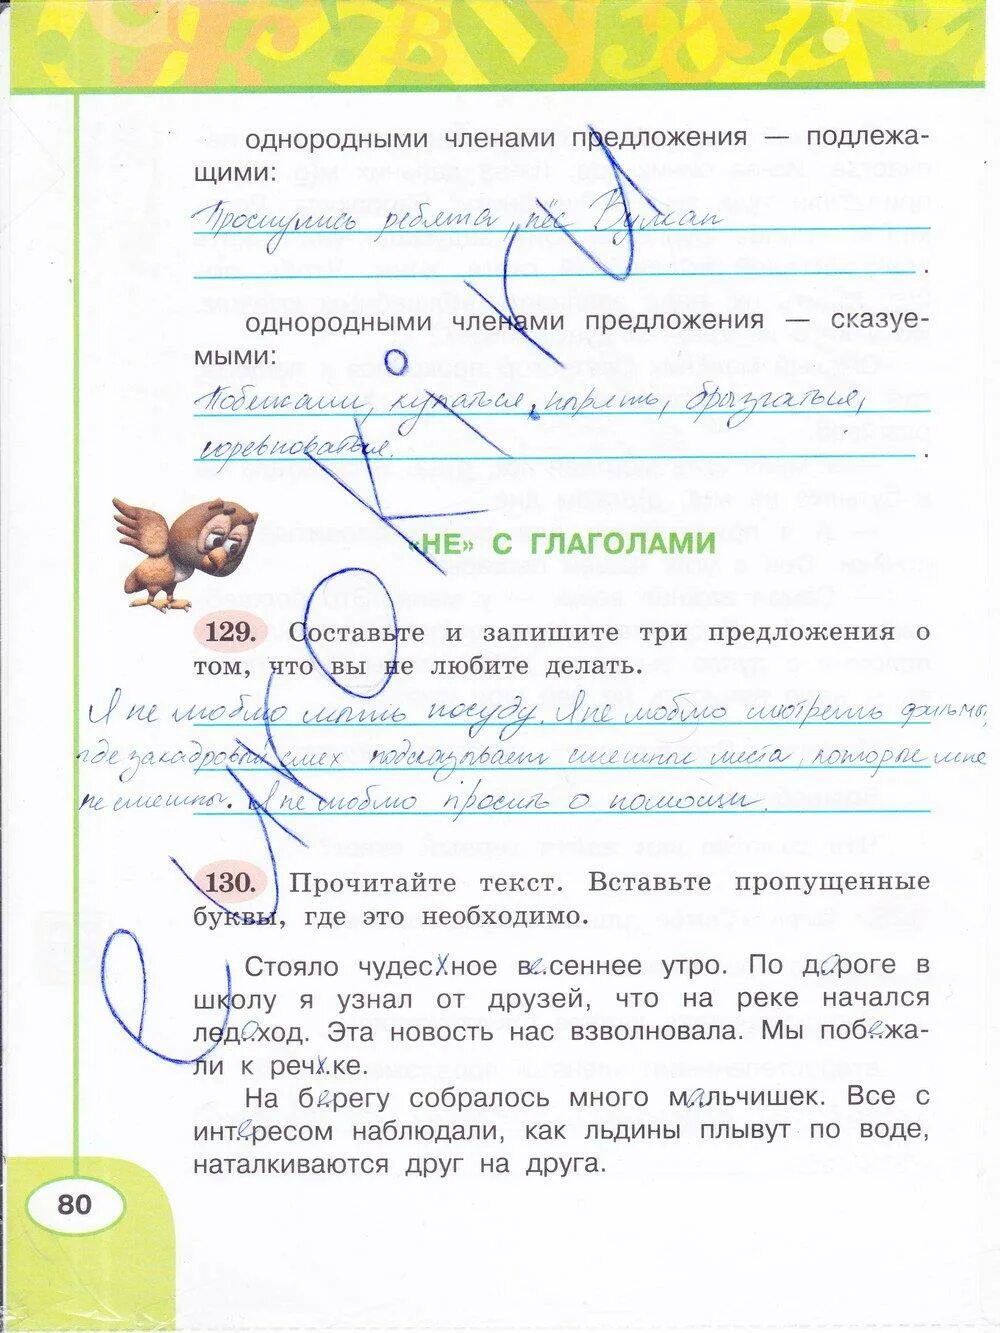 однородными членами предложения — подлежа-
щими:
Проснулись ребята, пёс Вулкан
.
однородными членами предложения — сказуе-
мыми:
Побежали, купаться, нырять, брызгаться,
соревноваться. .
«НЕ» С ГЛАГОЛАМИ
129. Составьте и запишите три предложения о
том, что вы не любите делать.
Я не люблю мыть посуду. Я не люблю смотреть фильмы,
где закадровый смех подсказывает смешные места, которые мне
не смешны. Я не люблю просить о помощи.
130. Прочитайте текст. Вставьте пропущенные
буквы, где это необходимо.
Стояло чудесное весеннее утро. По дороге в
школу я узнал от друзей, что на реке начался
ледоход. Эта новость нас взволновала. Мы побежа-
ли к речке.
На берегу собралось много мальчишек. Все с
интересом наблюдали, как льдины плывут по воде,
наталкиваются друг на друга.
80